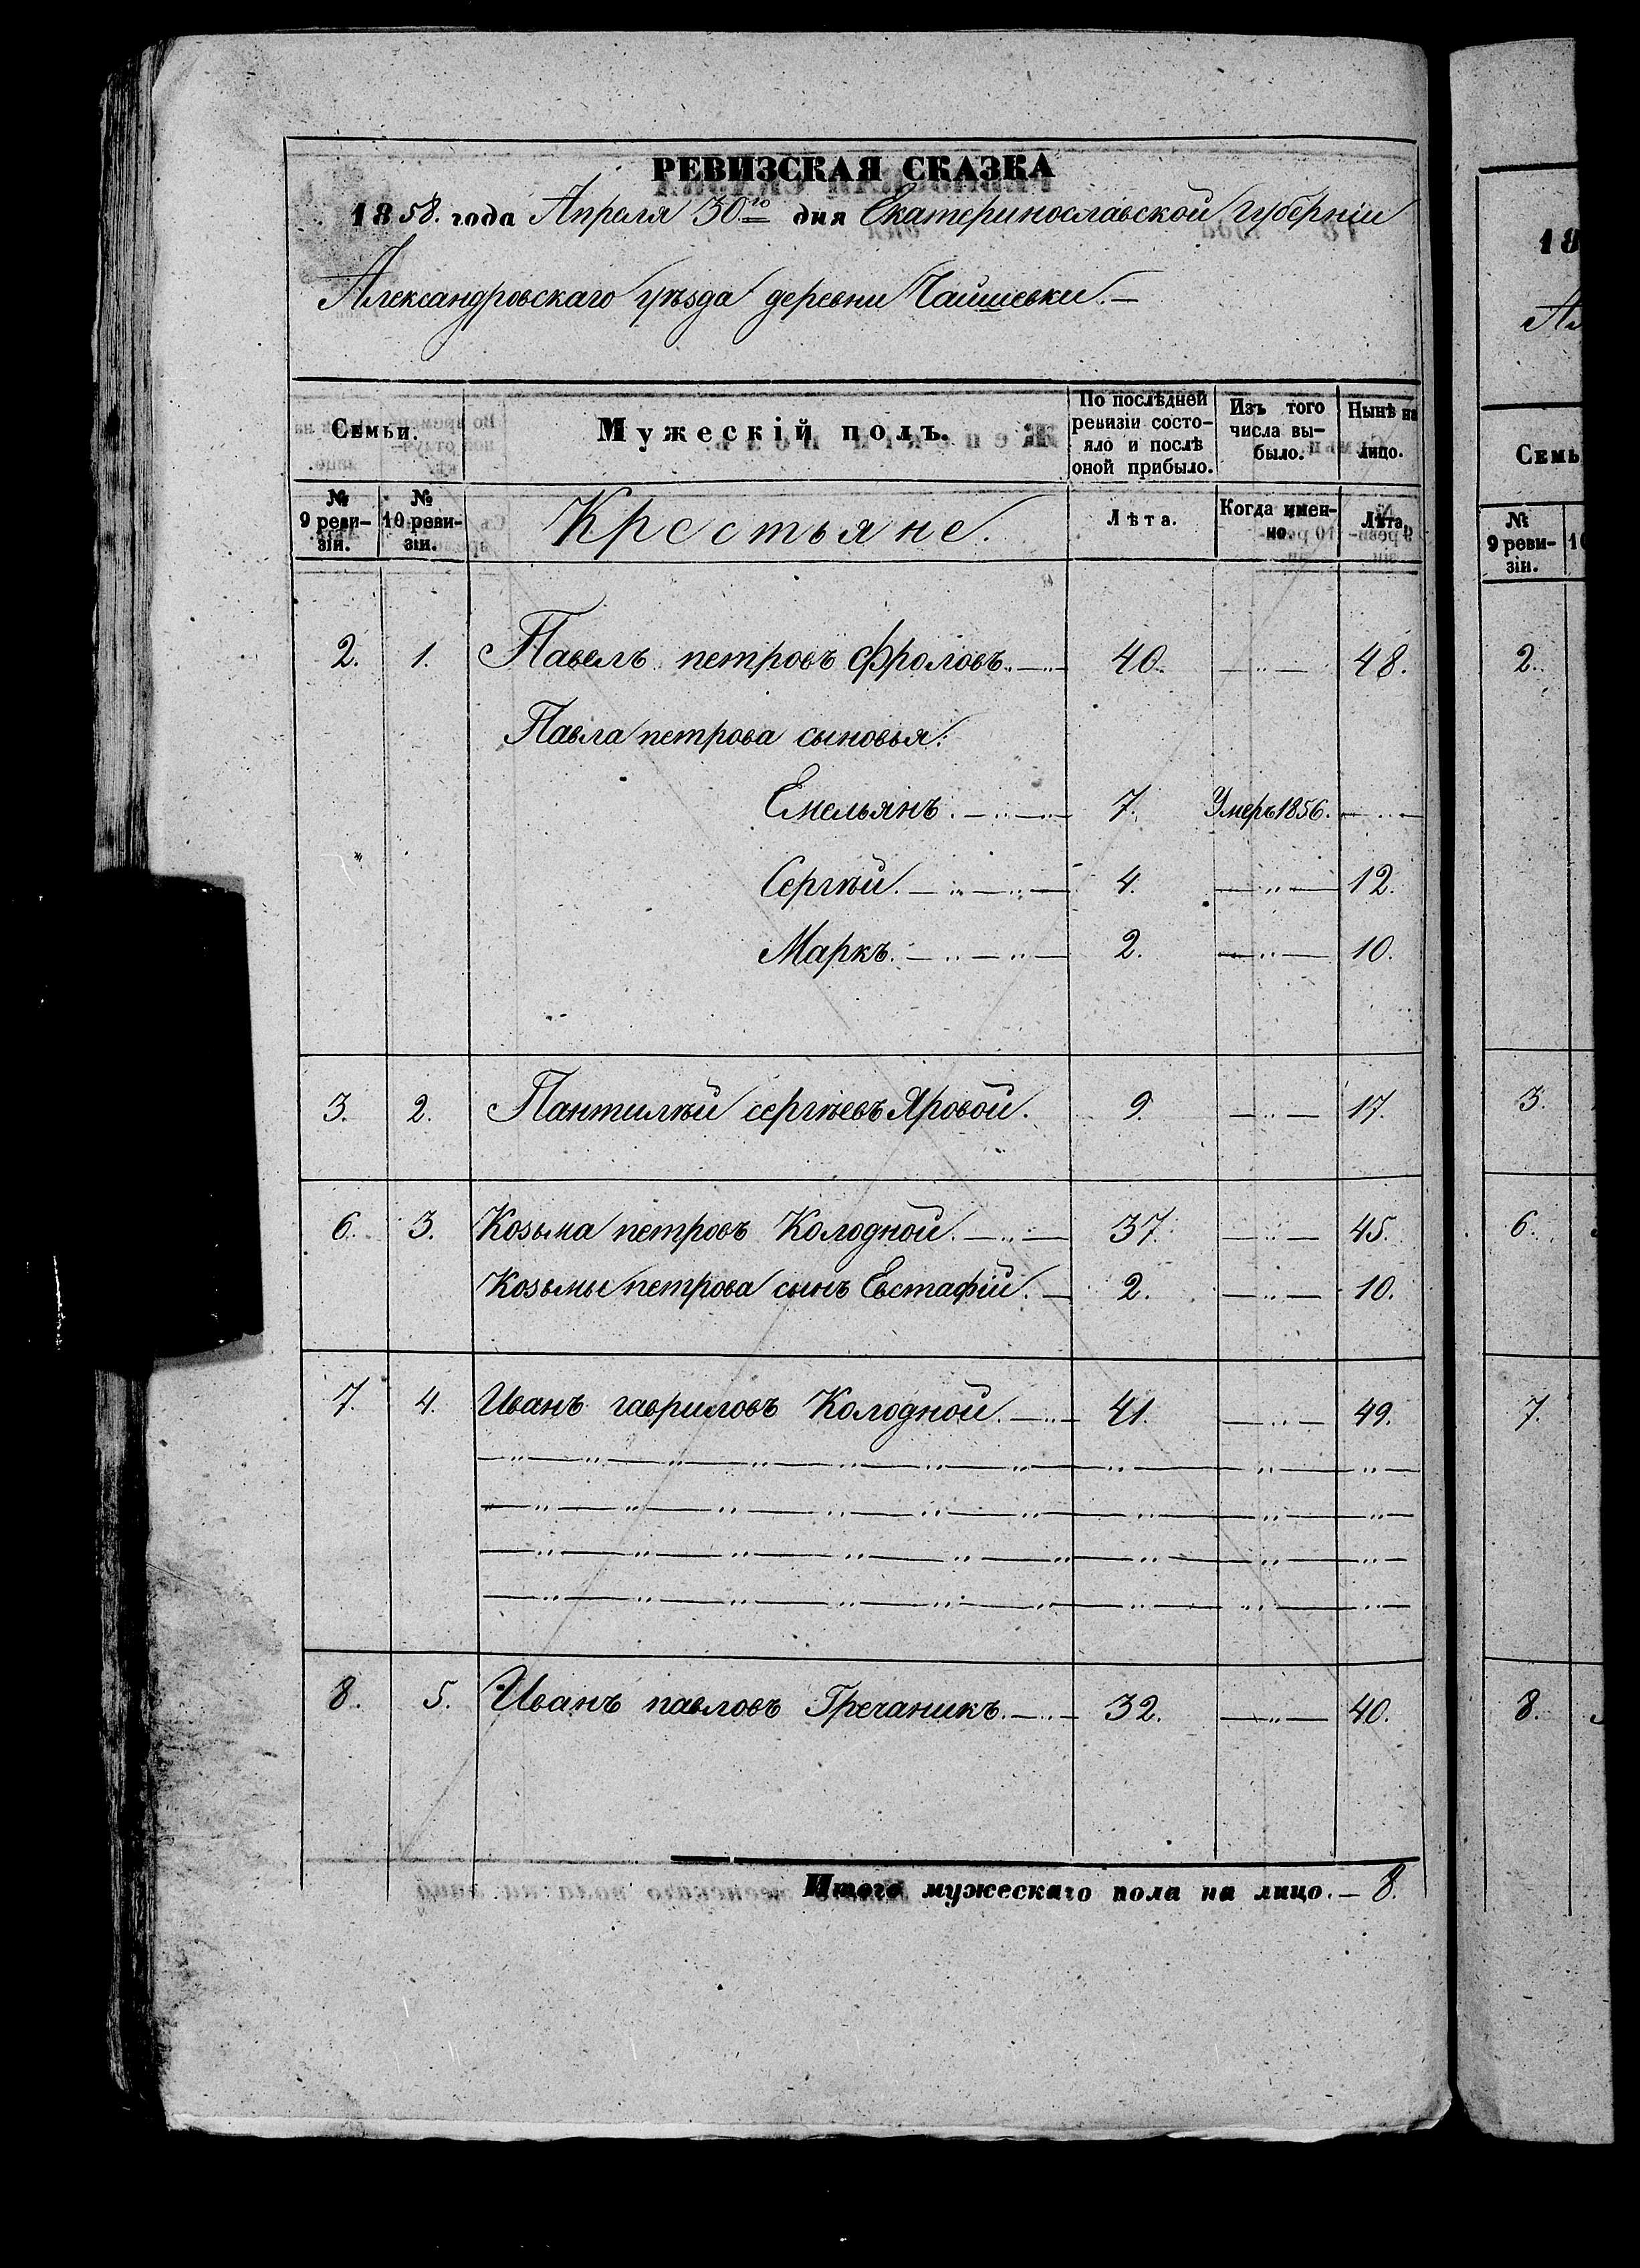 РЕВИЗСКАЯ СКАЗКА
1858. года Апреля 30го дня Екатеринославской Губерніи
Александровскаго уѣзда деревни Чаишевки.
Семьи. Мужескій полъ. По послѣдней ревизіи состояло и послѣ оной прибыло. Изъ того числа выбыло. Нынѣ на лицо.
№ 9 ревизіи. № 10 ревизіи. Крестьяне. Лѣта. Когда именно. Лѣта.
2. 1. Павелъ петровъ Фроловъ. 40. 48.
Павла петрова сыновья:
Емельянъ. 7. Умеръ 1856.
Сергѣй. 4. 12.
Маркъ. 2. 10.
3. 2. Пантилѣй сергѣевъ Яровой. 9. 17.
6. 3. Козьма петровъ Колодной. 37. 45.
Козьмы петрова сынъ Евстафій. 2. 10.
7. 4. Иванъ гавриловъ Колодной. 41. 49.
8. 5. Иванъ павловъ Гречаникъ. 32. 40.
Итого мужескаго пола на лицо. 8.
18
Семь
№ 9 ревизіи. 10
2.
3.
6.
7.
8.